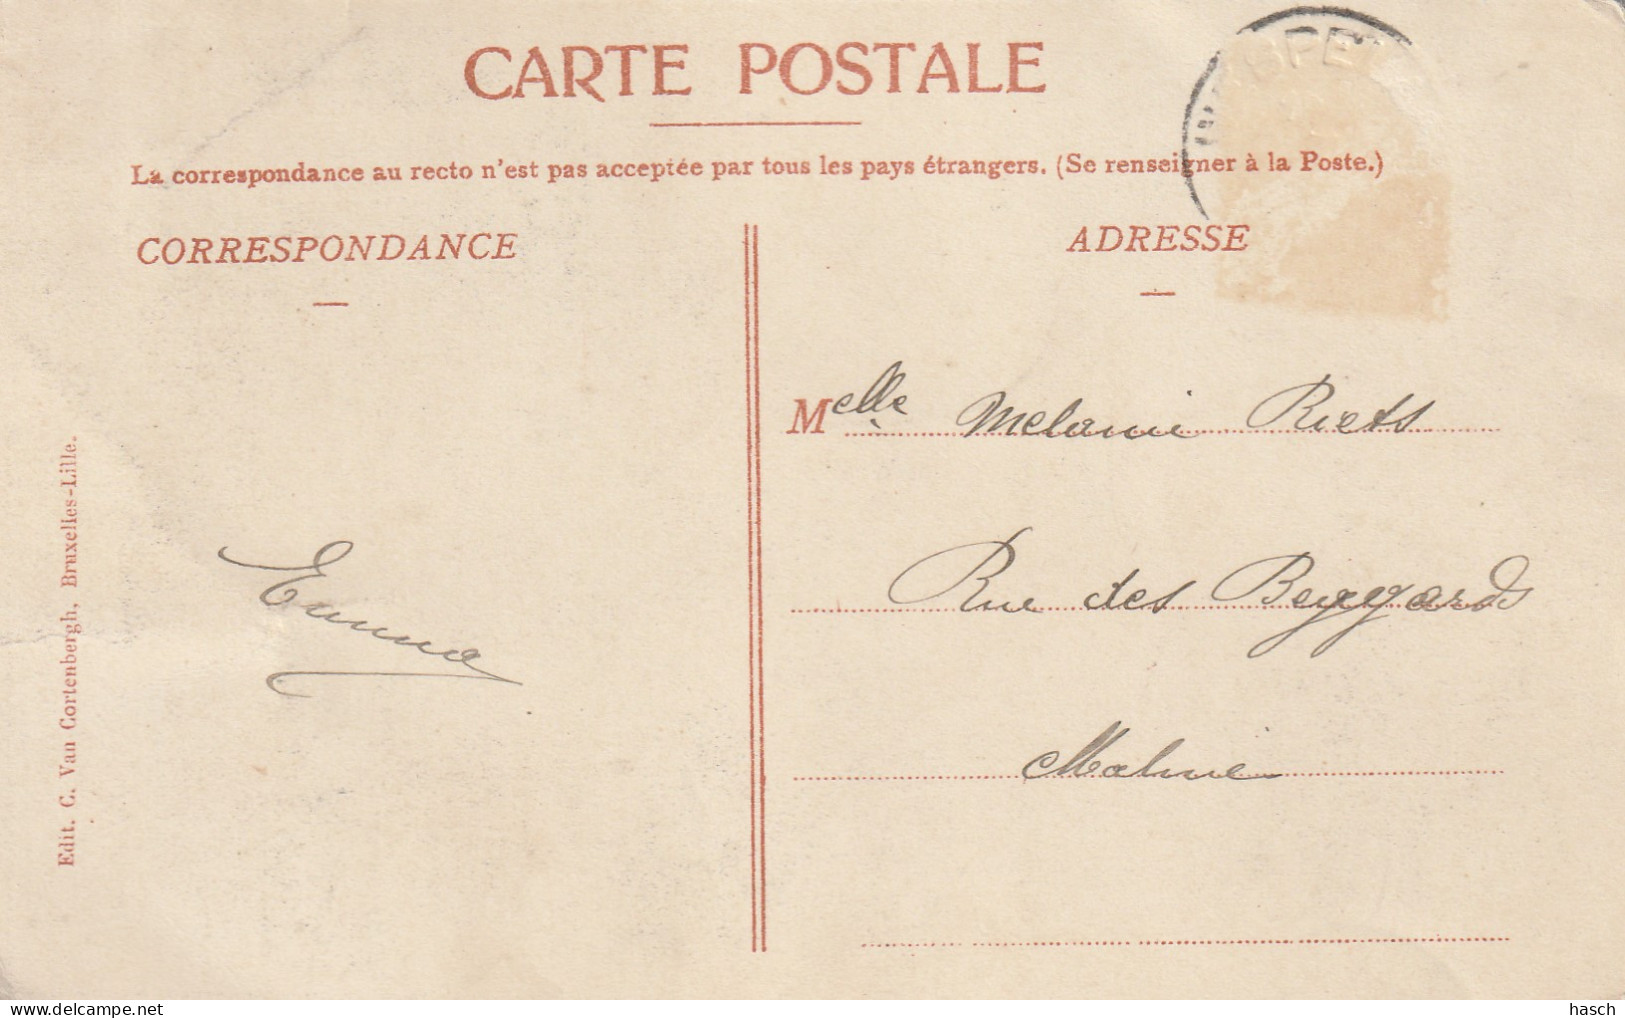 CARTE POSTALE
La correspondance au recto n'est pas acceptée par tous les pays étrangers. (Se renseigner à la Poste.)
CORRESPONDANCE
ADRESSE
Melle Melanie Riets
Rue des Beggards
Maline
Emma
Edit. C. Van Cortenbergh, Bruxelles-Lille.
hasch